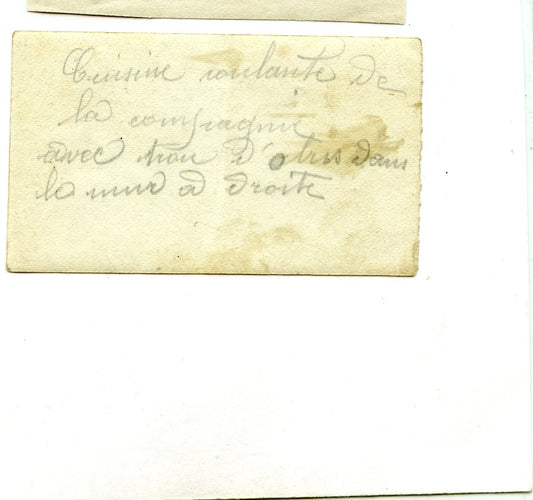 Cuisine roulante de
la compagnie
avec trou d'obus dans
le mur a droite